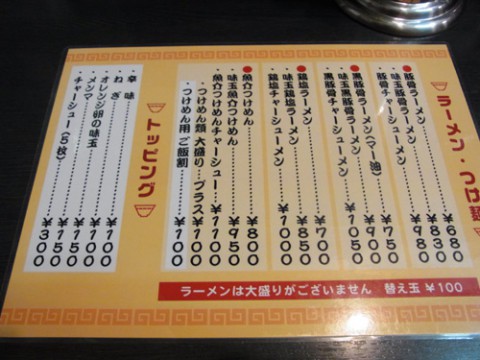 ラーメン・つけ麺
●豚骨ラーメン……¥680
・味玉豚骨ラーメン……¥830
・豚骨チャーシューメン……¥980
●黒豚骨ラーメン(マー油)……¥750
・味玉黒豚骨ラーメン……¥900
・黒豚骨チャーシューメン……¥1050
●鶏塩ラーメン……¥700
・味玉鶏塩ラーメン……¥850
・鶏塩チャーシューメン……¥1000
●魚介つけめん……¥800
・味玉魚介つけめん……¥950
・魚介つけめんチャーシュー……¥1100
・つけめん類 大盛り プラス¥100
・つけめん用ご飯割……¥100
トッピング
・辛味……¥100
・ねぎ……¥100
・オレンジ卵の味玉……¥150
・メンマ……¥150
・チャーシュー(5枚)……¥300
ラーメンは大盛りがございません 替え玉 ¥100